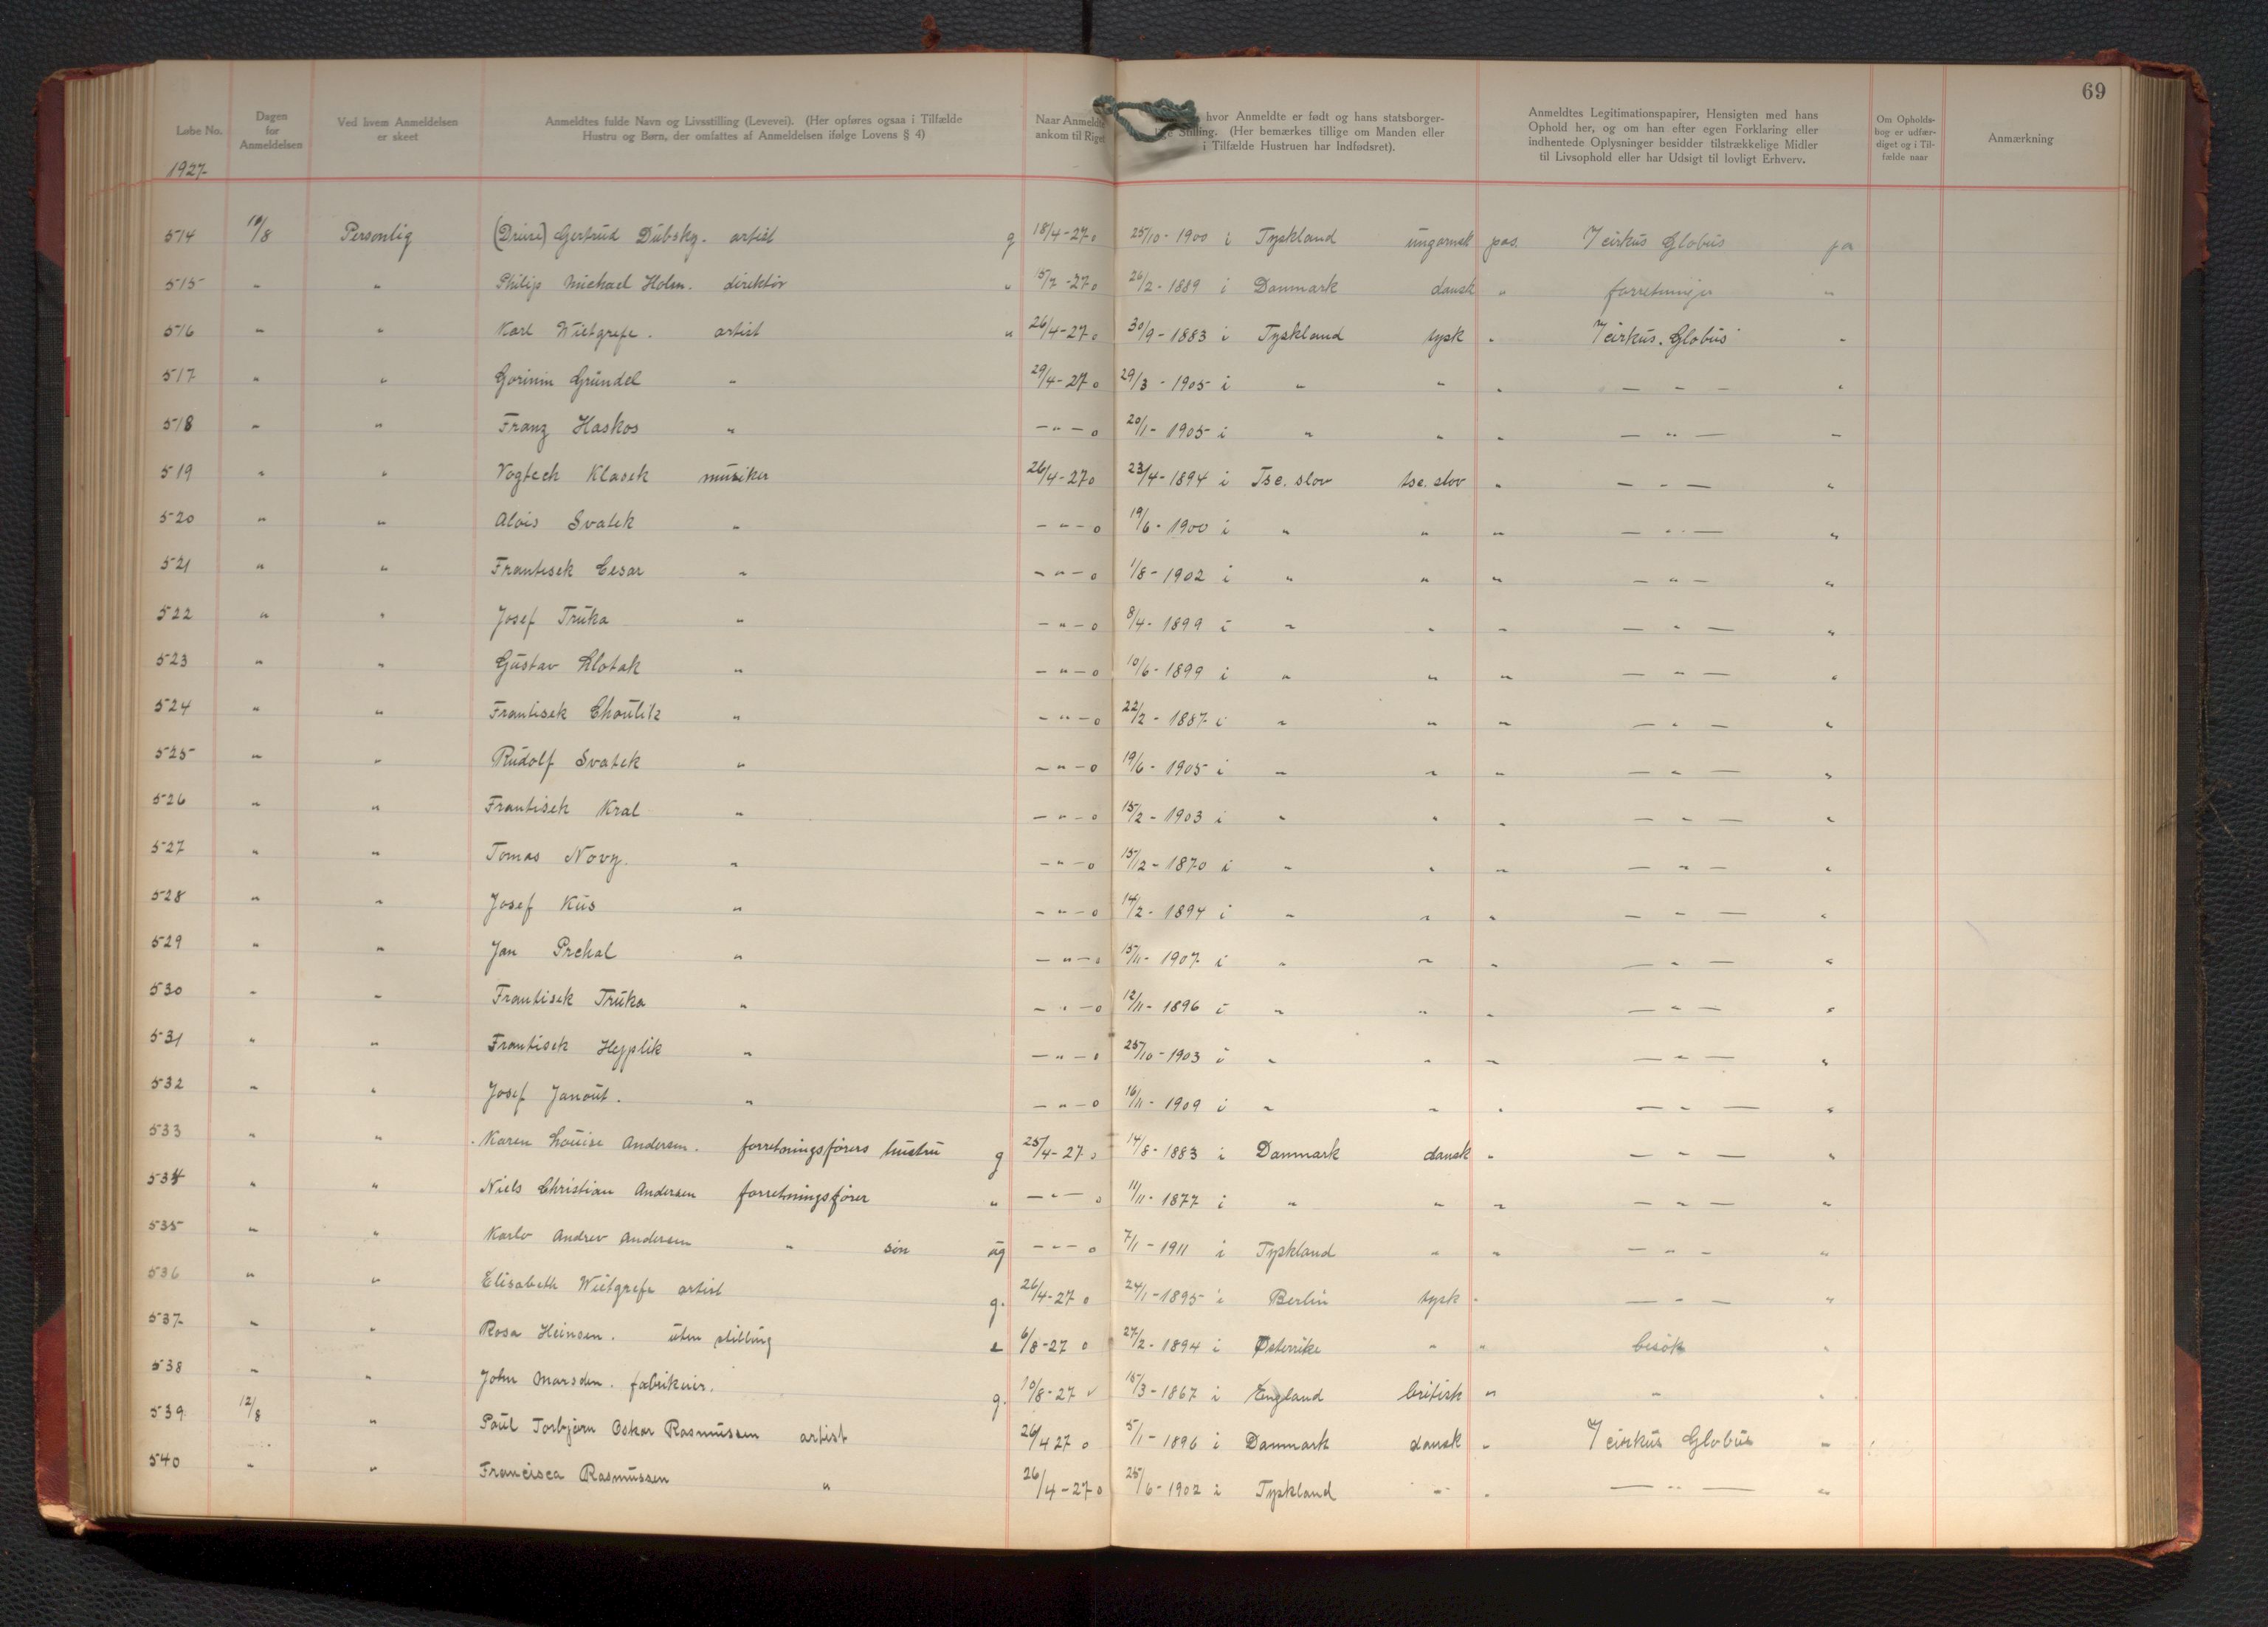 69
Løbe No. Dagen for Anmeldelsen Ved hvem Anmeldelsen er skeet Anmeldtes fulde Navn og Livsstilling (Levevei). (Her opføres ogsaa i Tilfælde Hustru og Børn, der omfattes af Anmeldelsen ifølge Lovens § 4) Naar Anmeldte ankom til Riget hvor Anmeldte er født og hans statsborgerlige Stilling. (Her bemærkes tillige om Manden eller i Tilfælde Hustruen har Indfødsret). Anmeldtes Legitimationspapirer, Hensigten med hans Ophold her, og om han efter egen Forklaring eller indhentede Oplysninger besidder tilstrækkelige Midler til Livsophold eller har Udsigt til lovligt Erhverv. Om Opholdsbog er udfærdiget og i Tilfælde naar Anmærkning
1927
514 10/8 Personlig Gertrud Dubsky. artist g 18/4-27 o 25/10-1900 i Tyskland ungarnsk pas. I cirkus Globus ja
515 " " Philip Michael Holm. direktør " 15/7-27 o 26/2-1889 i Danmark dansk " forretninger "
516 " " Karl Wietgrefe. artist " 26/4-27 o 30/9-1883 i Tyskland tysk " I cirkus. Globus "
517 " " Gründel " 29/4-27 o 29/3-1905 i " " " — " — "
518 " " Franz Haskos " — " — o 20/1-1905 i " " " — " — "
519 " " Vogtech Klasek musiker 26/4-27 o 23/4-1894 i Tse. slov tse. slov " — " — "
520 " " Alois Svatek " — " — o 19/6-1900 i " " " — " — "
521 " " Frantisek Cesar " — " — o 1/8-1902 i " " " — " — "
522 " " Josef Truka " — " — o 8/4-1899 i " " " — " — "
523 " " Gustav " — " — o 10/6-1899 i " " " — " — "
524 " " Frantisek " — " — o 22/2-1887 i " " " — " — "
525 " " Rudolf Svatek " — " — o 19/6-1905 i " " " — " — "
526 " " Frantisek Kral " — " — o 15/2-1903 i " " " — " — "
527 " " Tomas Novy. " — " — o 15/12-1870 i " " " — " — "
528 " " Josef Kus " — " — o 14/2-1894 i " " " — " — "
529 " " Jan Prchal " — " — o 15/11-1907 i " " " — " — "
530 " " Frantisek Truka " — " — o 12/11-1896 i " " " — " — "
531 " " Frantisek Hejplik " — " — o 25/10-1903 i " " " — " — "
532 " " Josef Janout. " — " — o 16/11-1909 i " " " — " — "
533 " " Karen Louise Andersen. forretningsførers hustru g 25/4-27 o 14/8-1883 i Danmark dansk " — " — "
534 " " Niels Christian Andersen forretningsfører " — " — o 11/11-1877 i " " " — " — "
535 " " Karlo Andrev Andersen " søn ug — " — o 7/1-1911 i Tyskland " " — " — "
536 " " Elisabeth Wietgrefe artist g. 26/4-27 o 24/1-1895 i Berlin tysk " — " — "
537 " " Rosa Heinsen. uten stilling e 6/8-27 o 27/2-1894 i Østerrike " " besøk "
538 " " John Marsden. fabrikeier. g. 10/8-27 v 15/3-1867 i England britisk " " "
539 12/8 " Paul Torbjørn Oskar Rasmussen artist 26/4 27 o 5/1-1896 i Danmark dansk " I cirkus Globus "
540 " " Francisca Rasmussen " 26/4-27 o 25/6-1902 i Tyskland " " — " — "